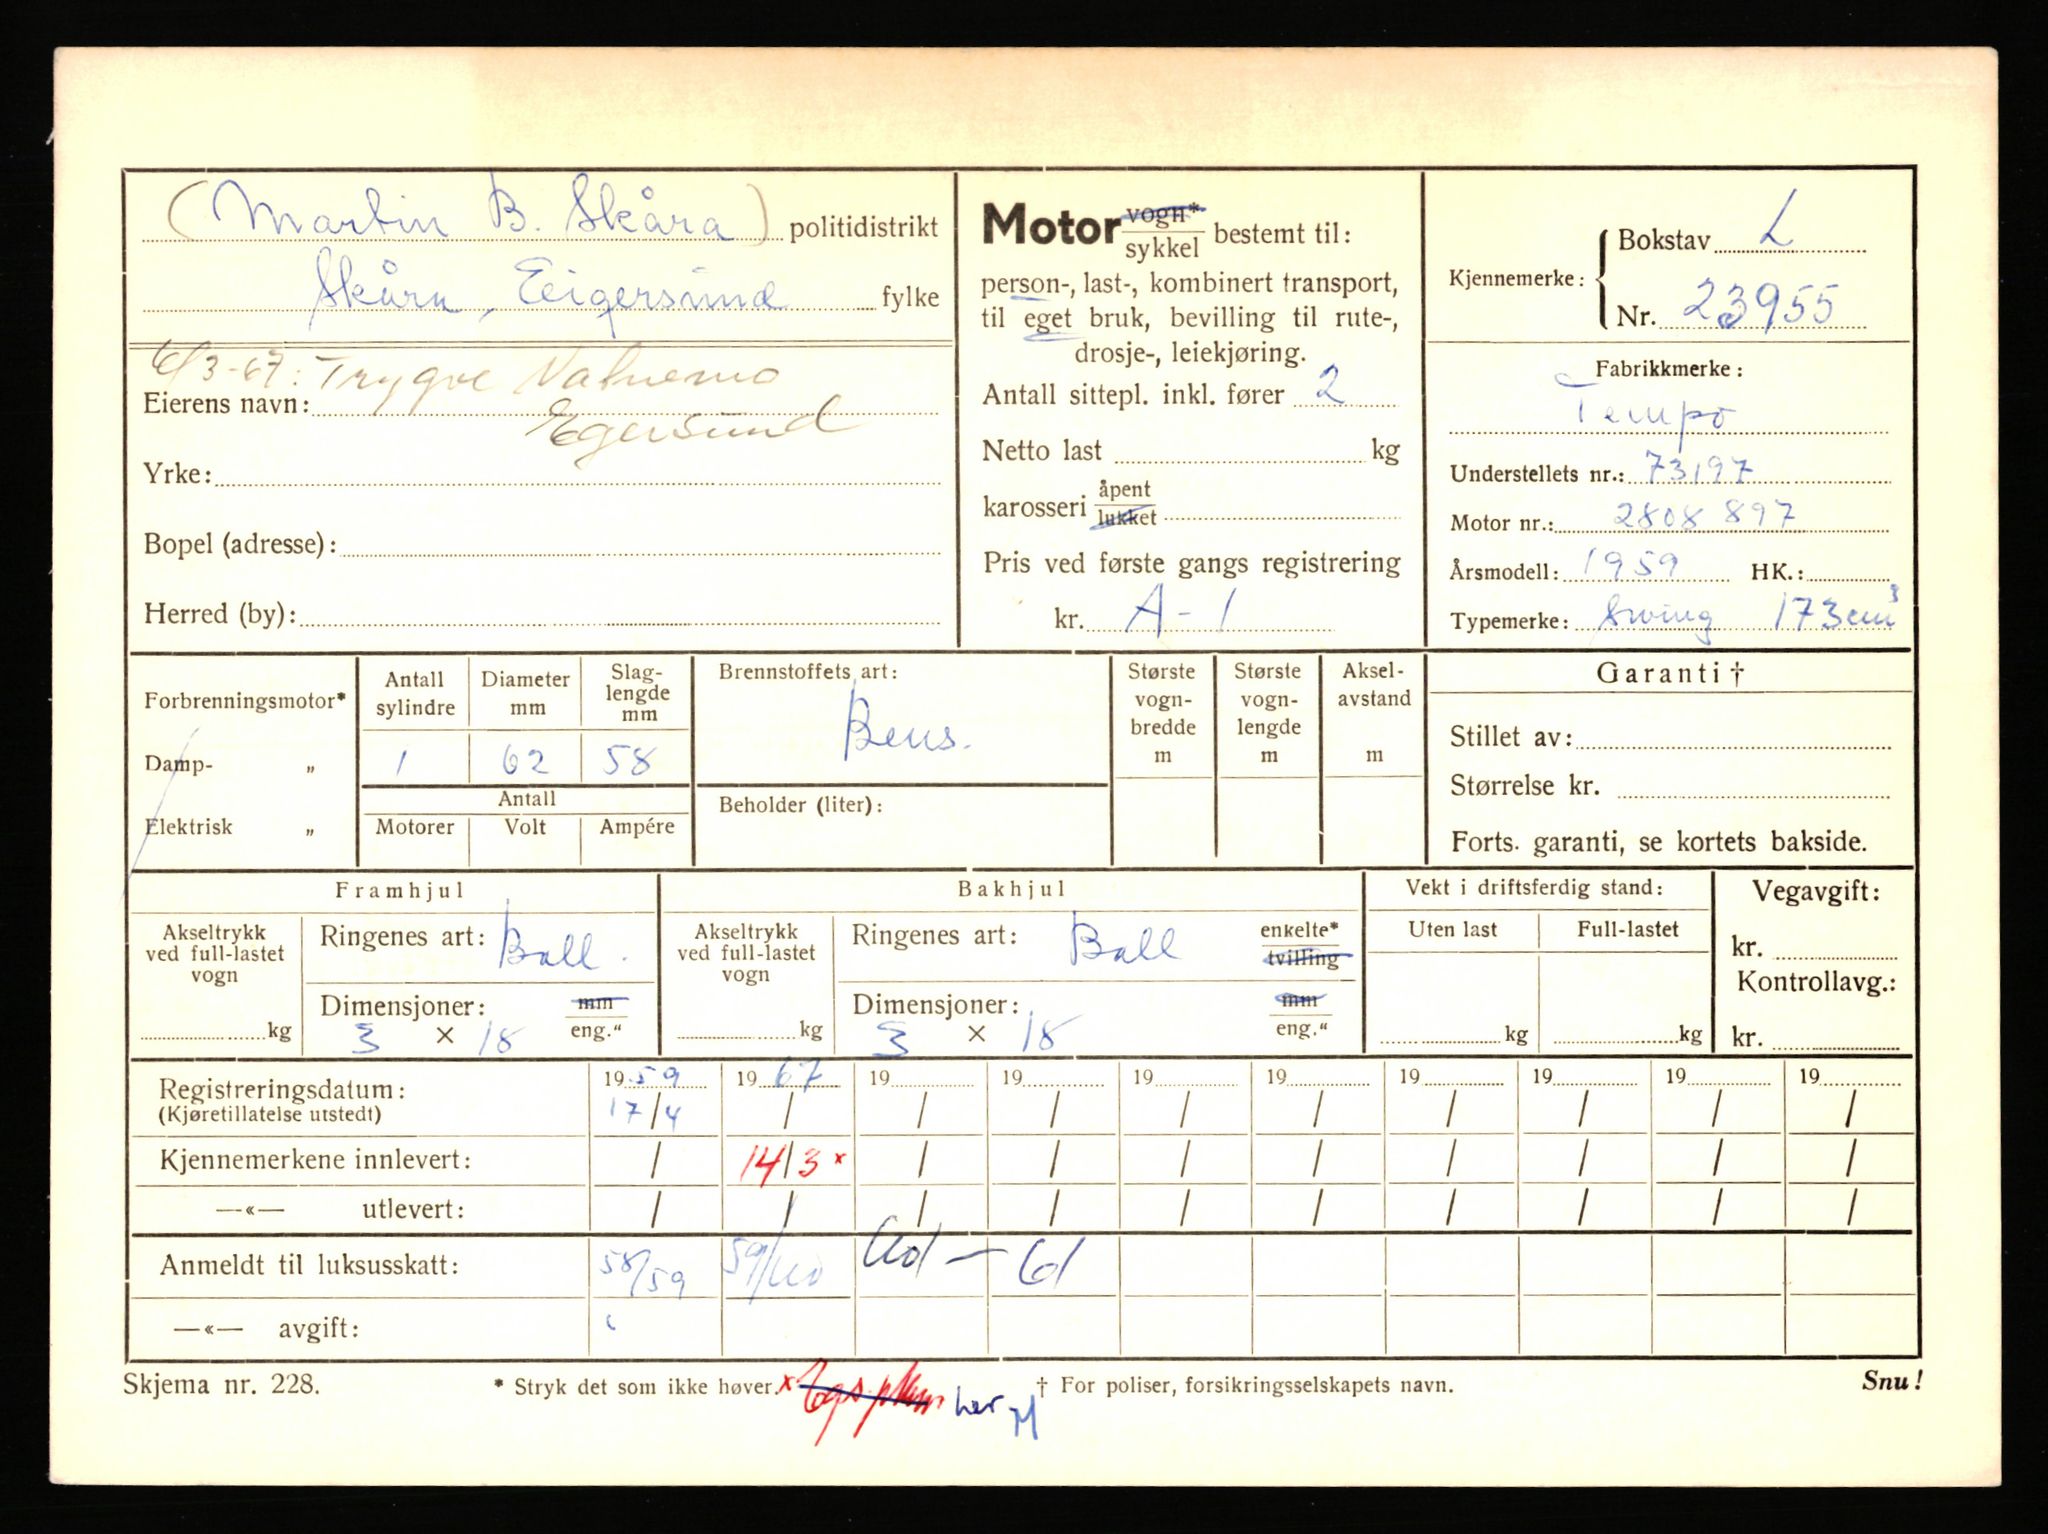 (Martin B. Skåra) politidistrikt
Skåra, Eigersund fylke
6/3-67: Trygve
Eierens navn:
Egersund
Yrke:
Bopel (adresse):
Herred (by):
Motor vogn* sykkel bestemt til:
person-, last-, kombinert transport,
til eget bruk, bevilling til rute-,
drosje-, leiekjøring.
Antall sittepl. inkl. fører 2
Netto last kg
karosseri åpent lukket
Pris ved første gangs registrering
kr. A-1
Kjennemerke: Bokstav L
Nr. 23955
Fabrikkmerke:
Tempo
Understellets nr.: 73197
Motor nr.: 2808 897
Årsmodell: 1959 HK.:
Typemerke: Swing 173 cm³
Forbrenningsmotor*
Damp- „
Elektrisk „
Antall sylindre
Diameter mm
Slag-lengde mm
1 62 58
Antall
Motorer Volt Ampére
Brennstoffets art:
Bens.
Beholder (liter):
Største vogn-bredde m
Største vogn-lengde m
Aksel-avstand m
Garanti †
Stillet av:
Størrelse kr.
Forts. garanti, se kortets bakside.
Framhjul
Akseltrykk ved full-lastet vogn
kg
Ringenes art: Ball.
Dimensjoner: mm
3 × 18 eng."
Bakhjul
Akseltrykk ved full-lastet vogn
kg
Ringenes art: Ball enkelte* tvilling
Dimensjoner: mm
3 × 18 eng."
Vekt i driftsferdig stand:
Uten last Full-lastet
kg kg
Vegavgift:
kr.
Kontrollavg.:
kr.
Registreringsdatum: 1959 1967 19 19 19 19 19 19 19 19
(Kjøretillatelse utstedt) 17/4 / / / / / / / / /
Kjennemerkene innlevert: / 14/3 x / / / / / / / /
—«— utlevert: / / / / / / / / / /
Anmeldt til luksusskatt: 58/59 59/60 60 – 61
—«— avgift:
Skjema nr. 228. * Stryk det som ikke høver. x her † For poliser, forsikringsselskapets navn. Snu!